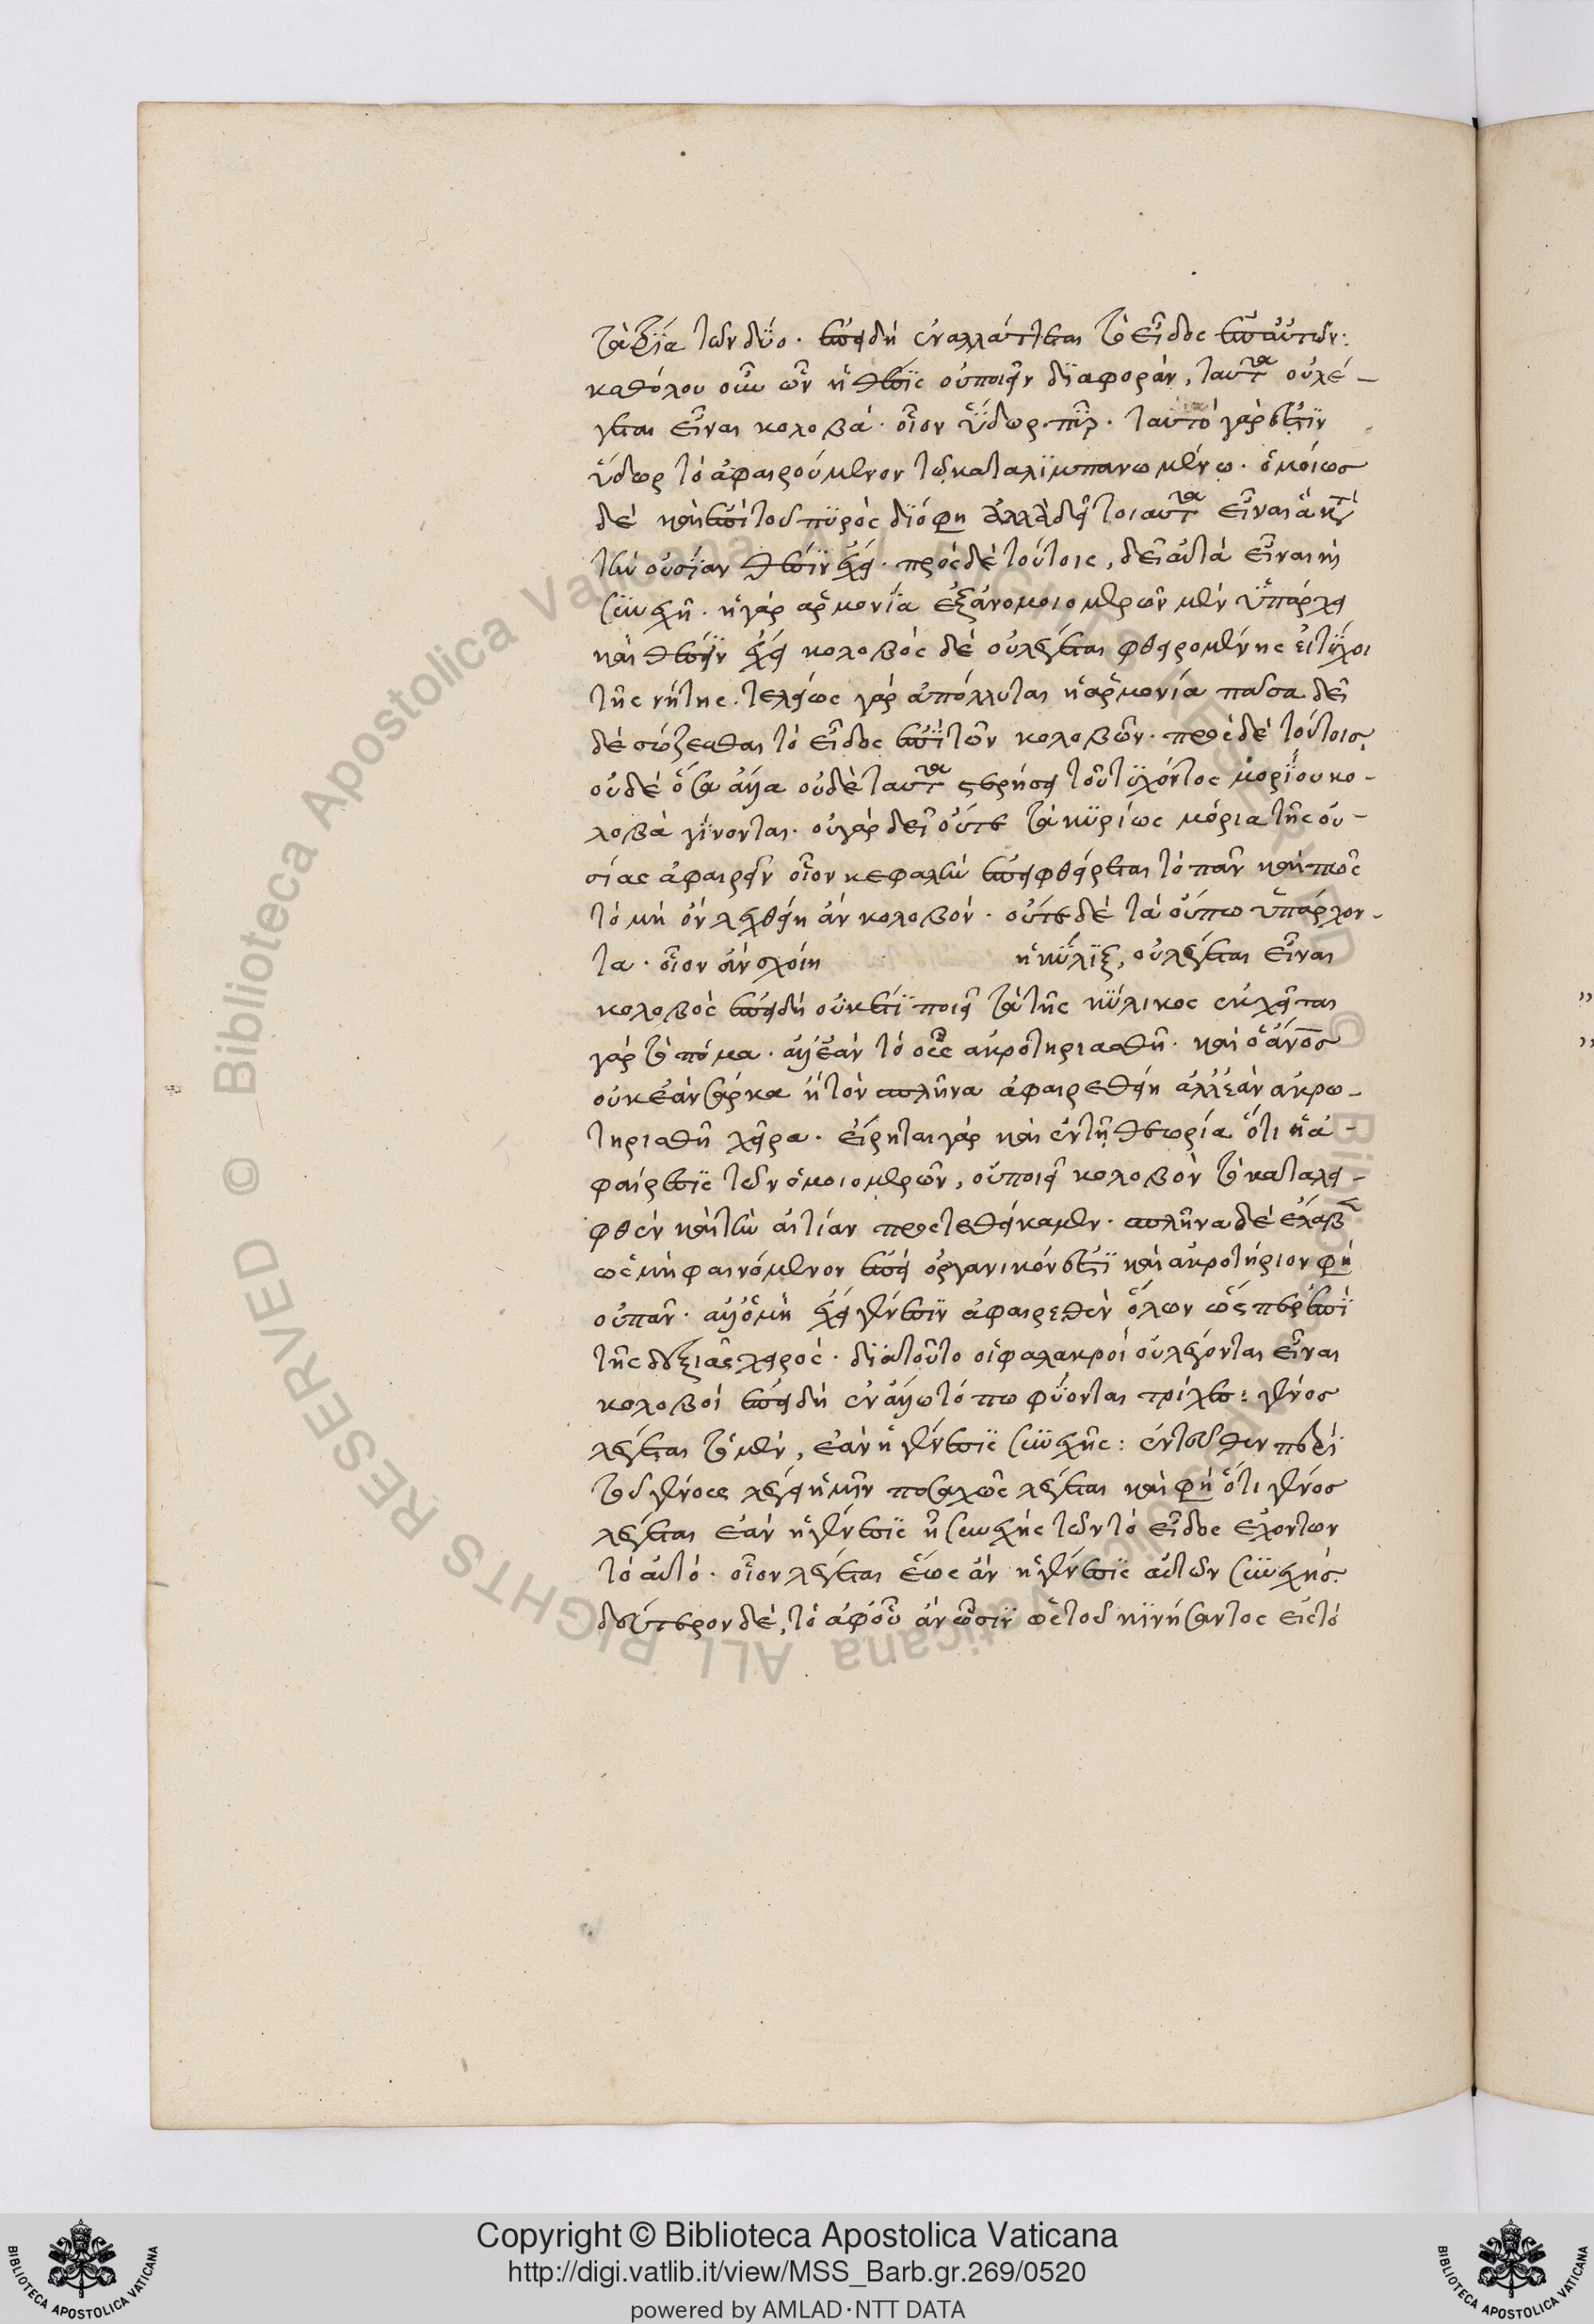 τὰ τρία τῶν δύο. ἐπειδὴ ἐναλλάττεται τὸ εἶδος ἐπ' αὐτῶν:
καθόλου οὖν ὧν ἡ θέσις οὐ ποιεῖν διαφορὰν, ταῦτα οὐ λέ-
γεται εἶναι κολοβά. οἷον ὕδωρ πῦρ. ταυτὸ γάρ ἐστιν
ὕδωρ τὸ ἀφαιρούμενον τῷ καταλιμπανωμένω. ὁμοίως
δὲ καὶ ἐπὶ τοῦ πυρὸς διό φη ἀλλὰ δεῖ τοιαῦτα εἶναι ἃ κτ
τὴν οὐσίαν θέσιν ἔχει. πρὸς δὲ τούτοις, δεῖ αὐτὰ εἶναι κὴ
συνεχῆ. ἡ γὰρ ἁρμονία ἐξ ἀνομοιομερῶν μὲν ὑπάρχει
καὶ θέσιν ἔχει κολοβὸς δὲ οὐ λέγεται φθειρομένης εἰ τύχοι
τῆς νήτης. τελείως γὰρ ἀπόλλυται ἡ ἁρμονία πᾶσα δεῖ
δὲ σώζεσθαι τὸ εἶδος ἐπὶ τῶν κολοβῶν. πρὸς δὲ τούτοις,
οὐδὲ ὅσα ἀλλὰ οὐδὲ ταῦτα στερήσει τοῦ τυχόντος μορίου κο-
λοβὰ γίνονται. οὐ γὰρ δεῖ οὔτε τὰ κυρίως μόρια τῆς οὐ-
σίας ἀφαιρεῖν οἷον κεφαλὴν ἐπεὶ φθείρεται τὸ πᾶν καὶ πῶς
τὸ μὴ ὂν λεχθείη ἂν κολοβόν. οὔτε δὲ τὰ οὔπω ὑπάρχον-
τα. οἷον ἂν σχοίη ἡ κύλιξ, οὐ λέγεται εἶναι
κολοβὸς ἐπειδὴ οὐκ ἔτι ποιεῖ τὰ τῆς κύλικος ἐκχεῖται
γὰρ τὸ πόμα. ἀλλ' ἐὰν τὸ οὖς ἀκροτηριασθῆ. καὶ ὁ ἄνος
οὐκ ἐὰν σάρκα ἢ τὸν σπλῆνα ἀφαιρεθείη ἀλλ' ἐὰν ἀκρω-
τηριαθῆ χεῖρα. εἴρηται γὰρ καὶ ἐν τῇ θεωρία ὅτι ἡ ἀ-
φαίρεσις τῶν ὁμοιομερῶν, οὐ ποιεῖ κολοβὸν τὸ καταλει-
φθὲν καὶ τὴν αἰτίαν προςτεθείκαμεν. σπλῆνα δὲ ἔλαβε
ὡς μὴ φαινόμενον ἐπεὶ ὀργανικόν ἐστι καὶ ἀκροτήριον φη
οὐ πᾶν. ἀλλ' ὃ μὴ ἔχει γένεσιν ἀφαιρεθὲν ὅλων ὥσπερ ἐπὶ
τῆς δεξιᾶς χειρός. διὰ τοῦτο οἱ φαλακροὶ οὐ λέγονται εἶναι
κολοβοί ἐπειδὴ ἐν ἄλλω τόπω φύονται τρίχες: γένος
λέγεται τὸ μὲν, ἐὰν ἡ γένεσις συνεχῆς: ἐντεῦθεν περὶ
τοῦ γένους λέγει ἡμῖν ποσαχῶς λέγεται καὶ φη ὅτι γένος
λέγεται ἐὰν ἡ γένεσις ἦ συνεχὴς τῶν τὸ εἶδος ἐχόντων
τὸ αὐτό. οἷον λέγεται ἕως ἂν ἡ γένεσις αὐτῶν συνεχὴς.
δεύτερον δὲ, τὸ ἀφ' οὗ ἂν ὦσιν ὡς τοῦ κινήσαντος εἰς τὸ
Copyright © Biblioteca Apostolica Vaticana
http://digi.vatlib.it/view/MSS_Barb.gr.269/0520
powered by AMLAD·NTT DATA